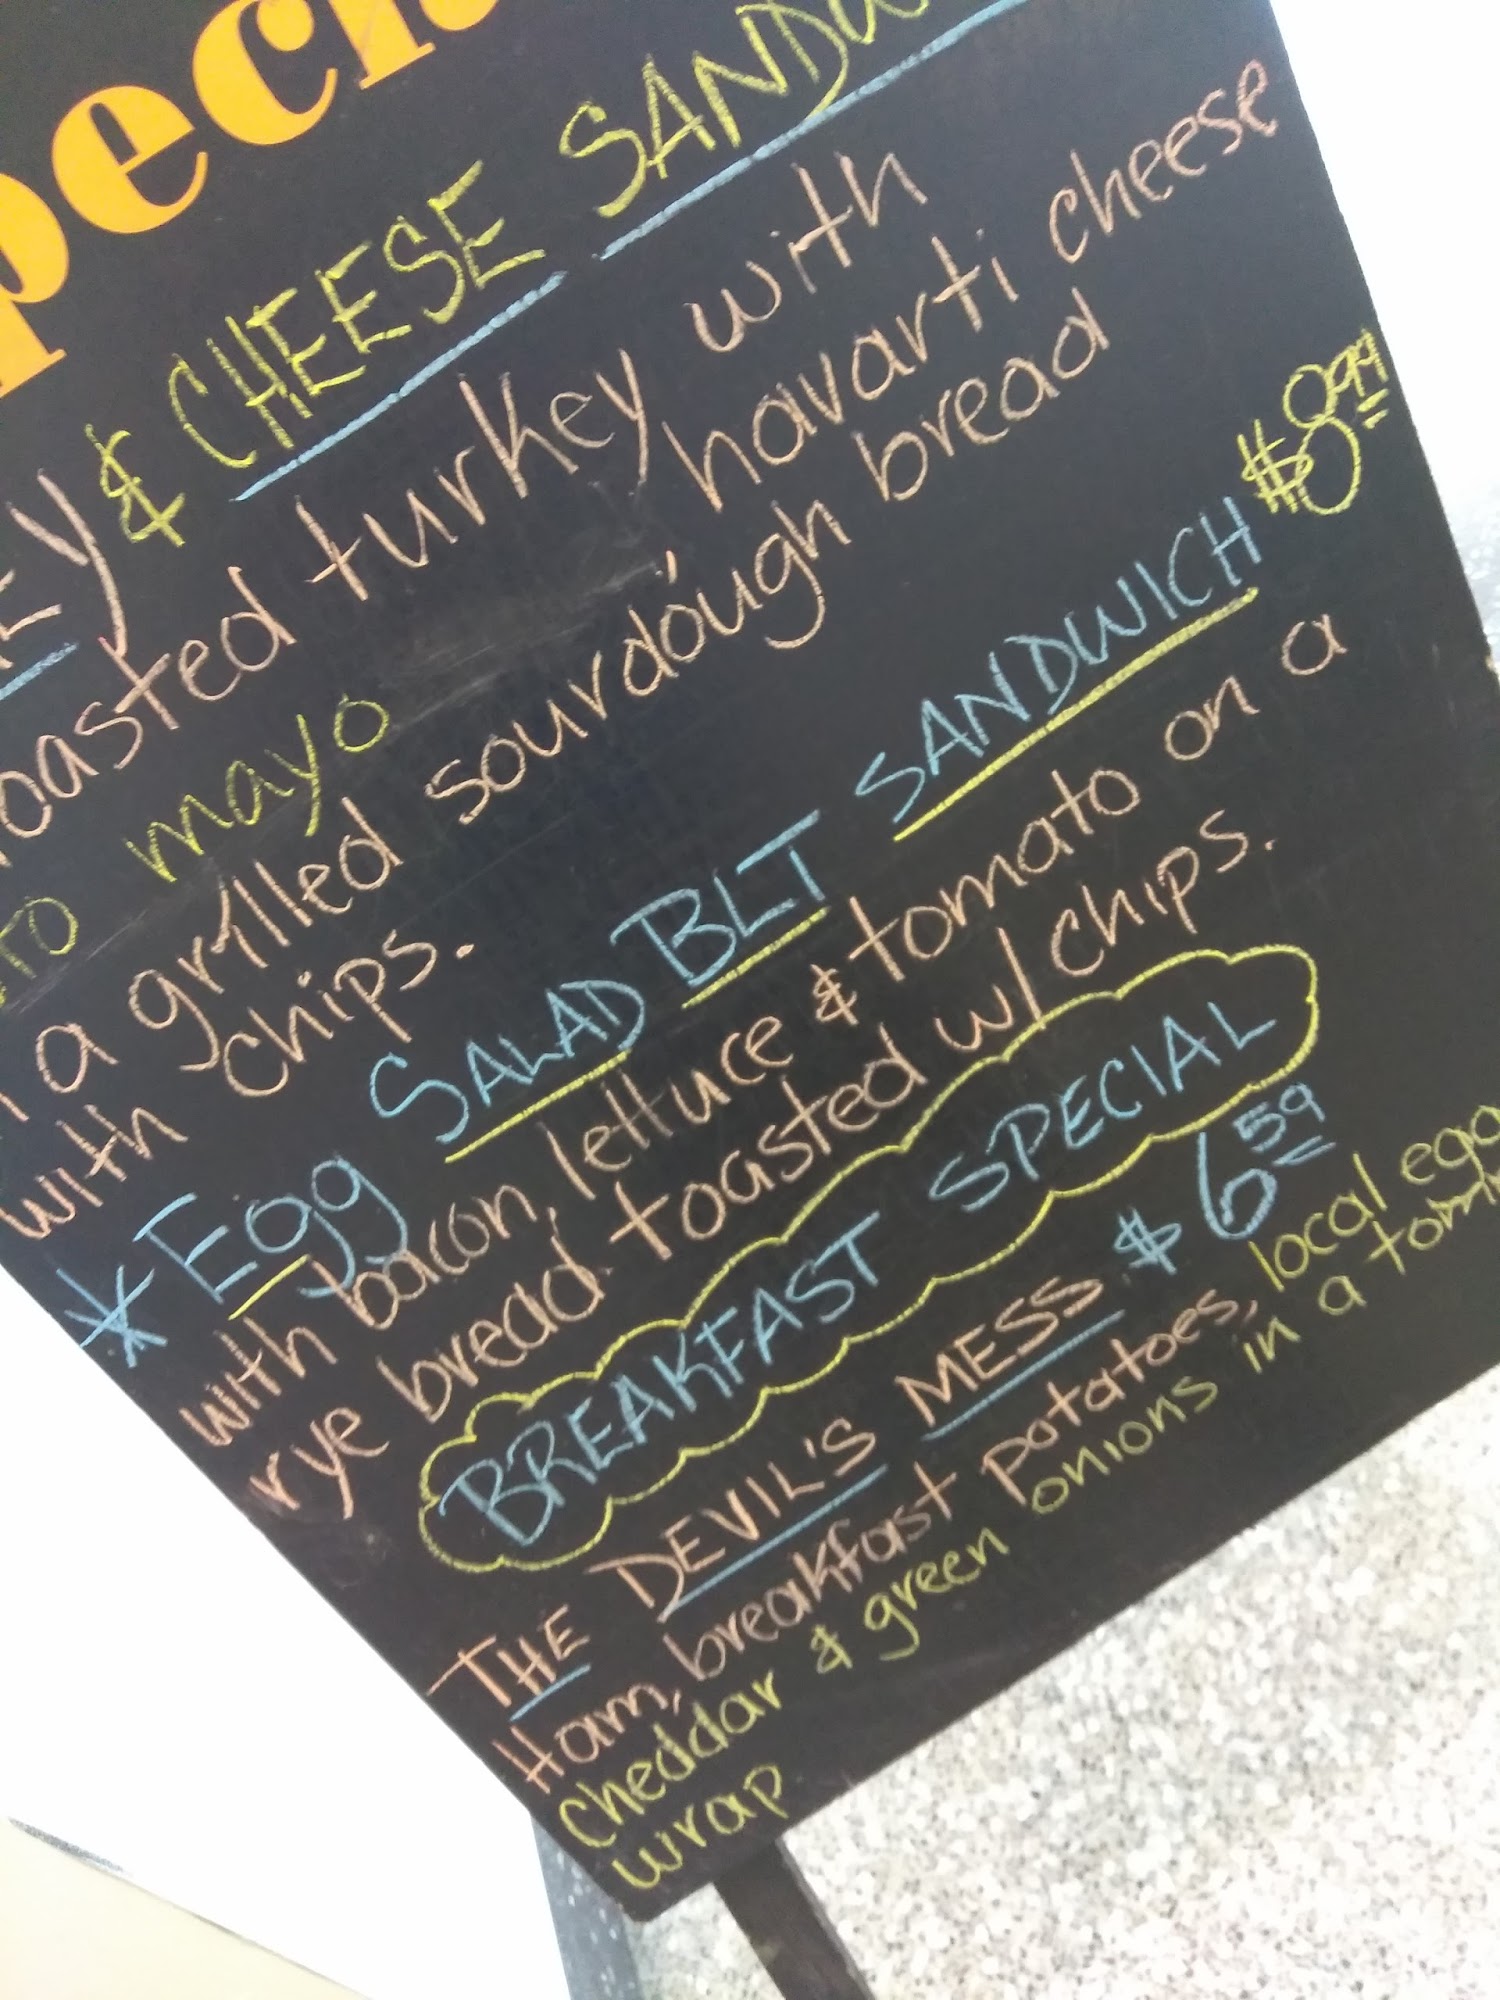 & CHEESE
turkey with
mayo havarti cheese
a grilled sourdough bread
with chips.
* Egg SALAD BLT SANDWICH $8.99
with bacon, lettuce & tomato on a
rye bread toasted w/ chips.
BREAKFAST SPECIAL
THE DEVIL'S MESS $6.59
Ham, breakfast potatoes, local
cheddar & green onions in a
wrap